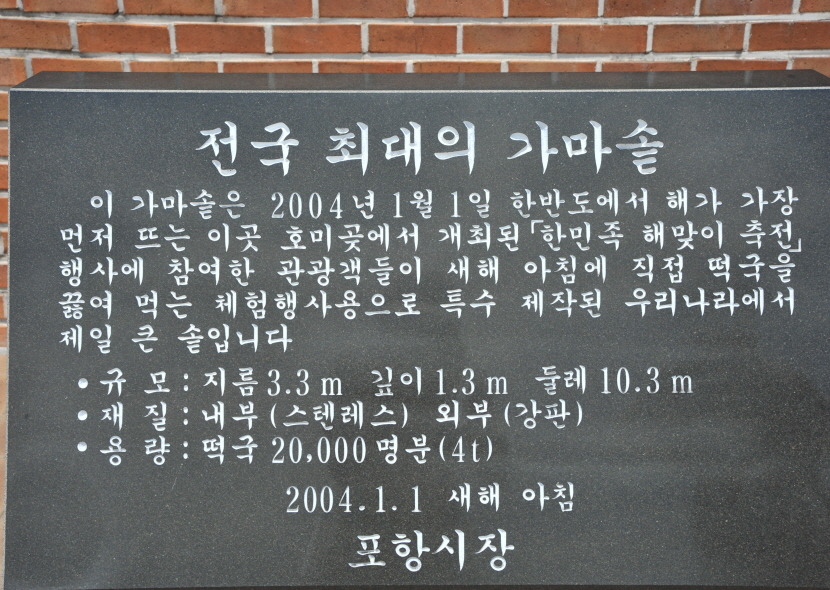 전국 최대의 가마솥
이 가마솥은 2004년 1월 1일 한반도에서 해가 가장
먼저 뜨는 이곳 호미곶에서 개최된「한민족 해맞이 축전」
행사에 참여한 관광객들이 새해 아침에 직접 떡국을
끓여 먹는 체험행사용으로 특수 제작된 우리나라에서
제일 큰 솥입니다
• 규 모 : 지름 3.3 m 깊이 1.3 m 둘레 10.3 m
• 재 질 : 내부 (스텐레스) 외부 (강판)
• 용 량 : 떡국 20,000 명분 (4t)
2004.1.1 새해 아침
포항시장